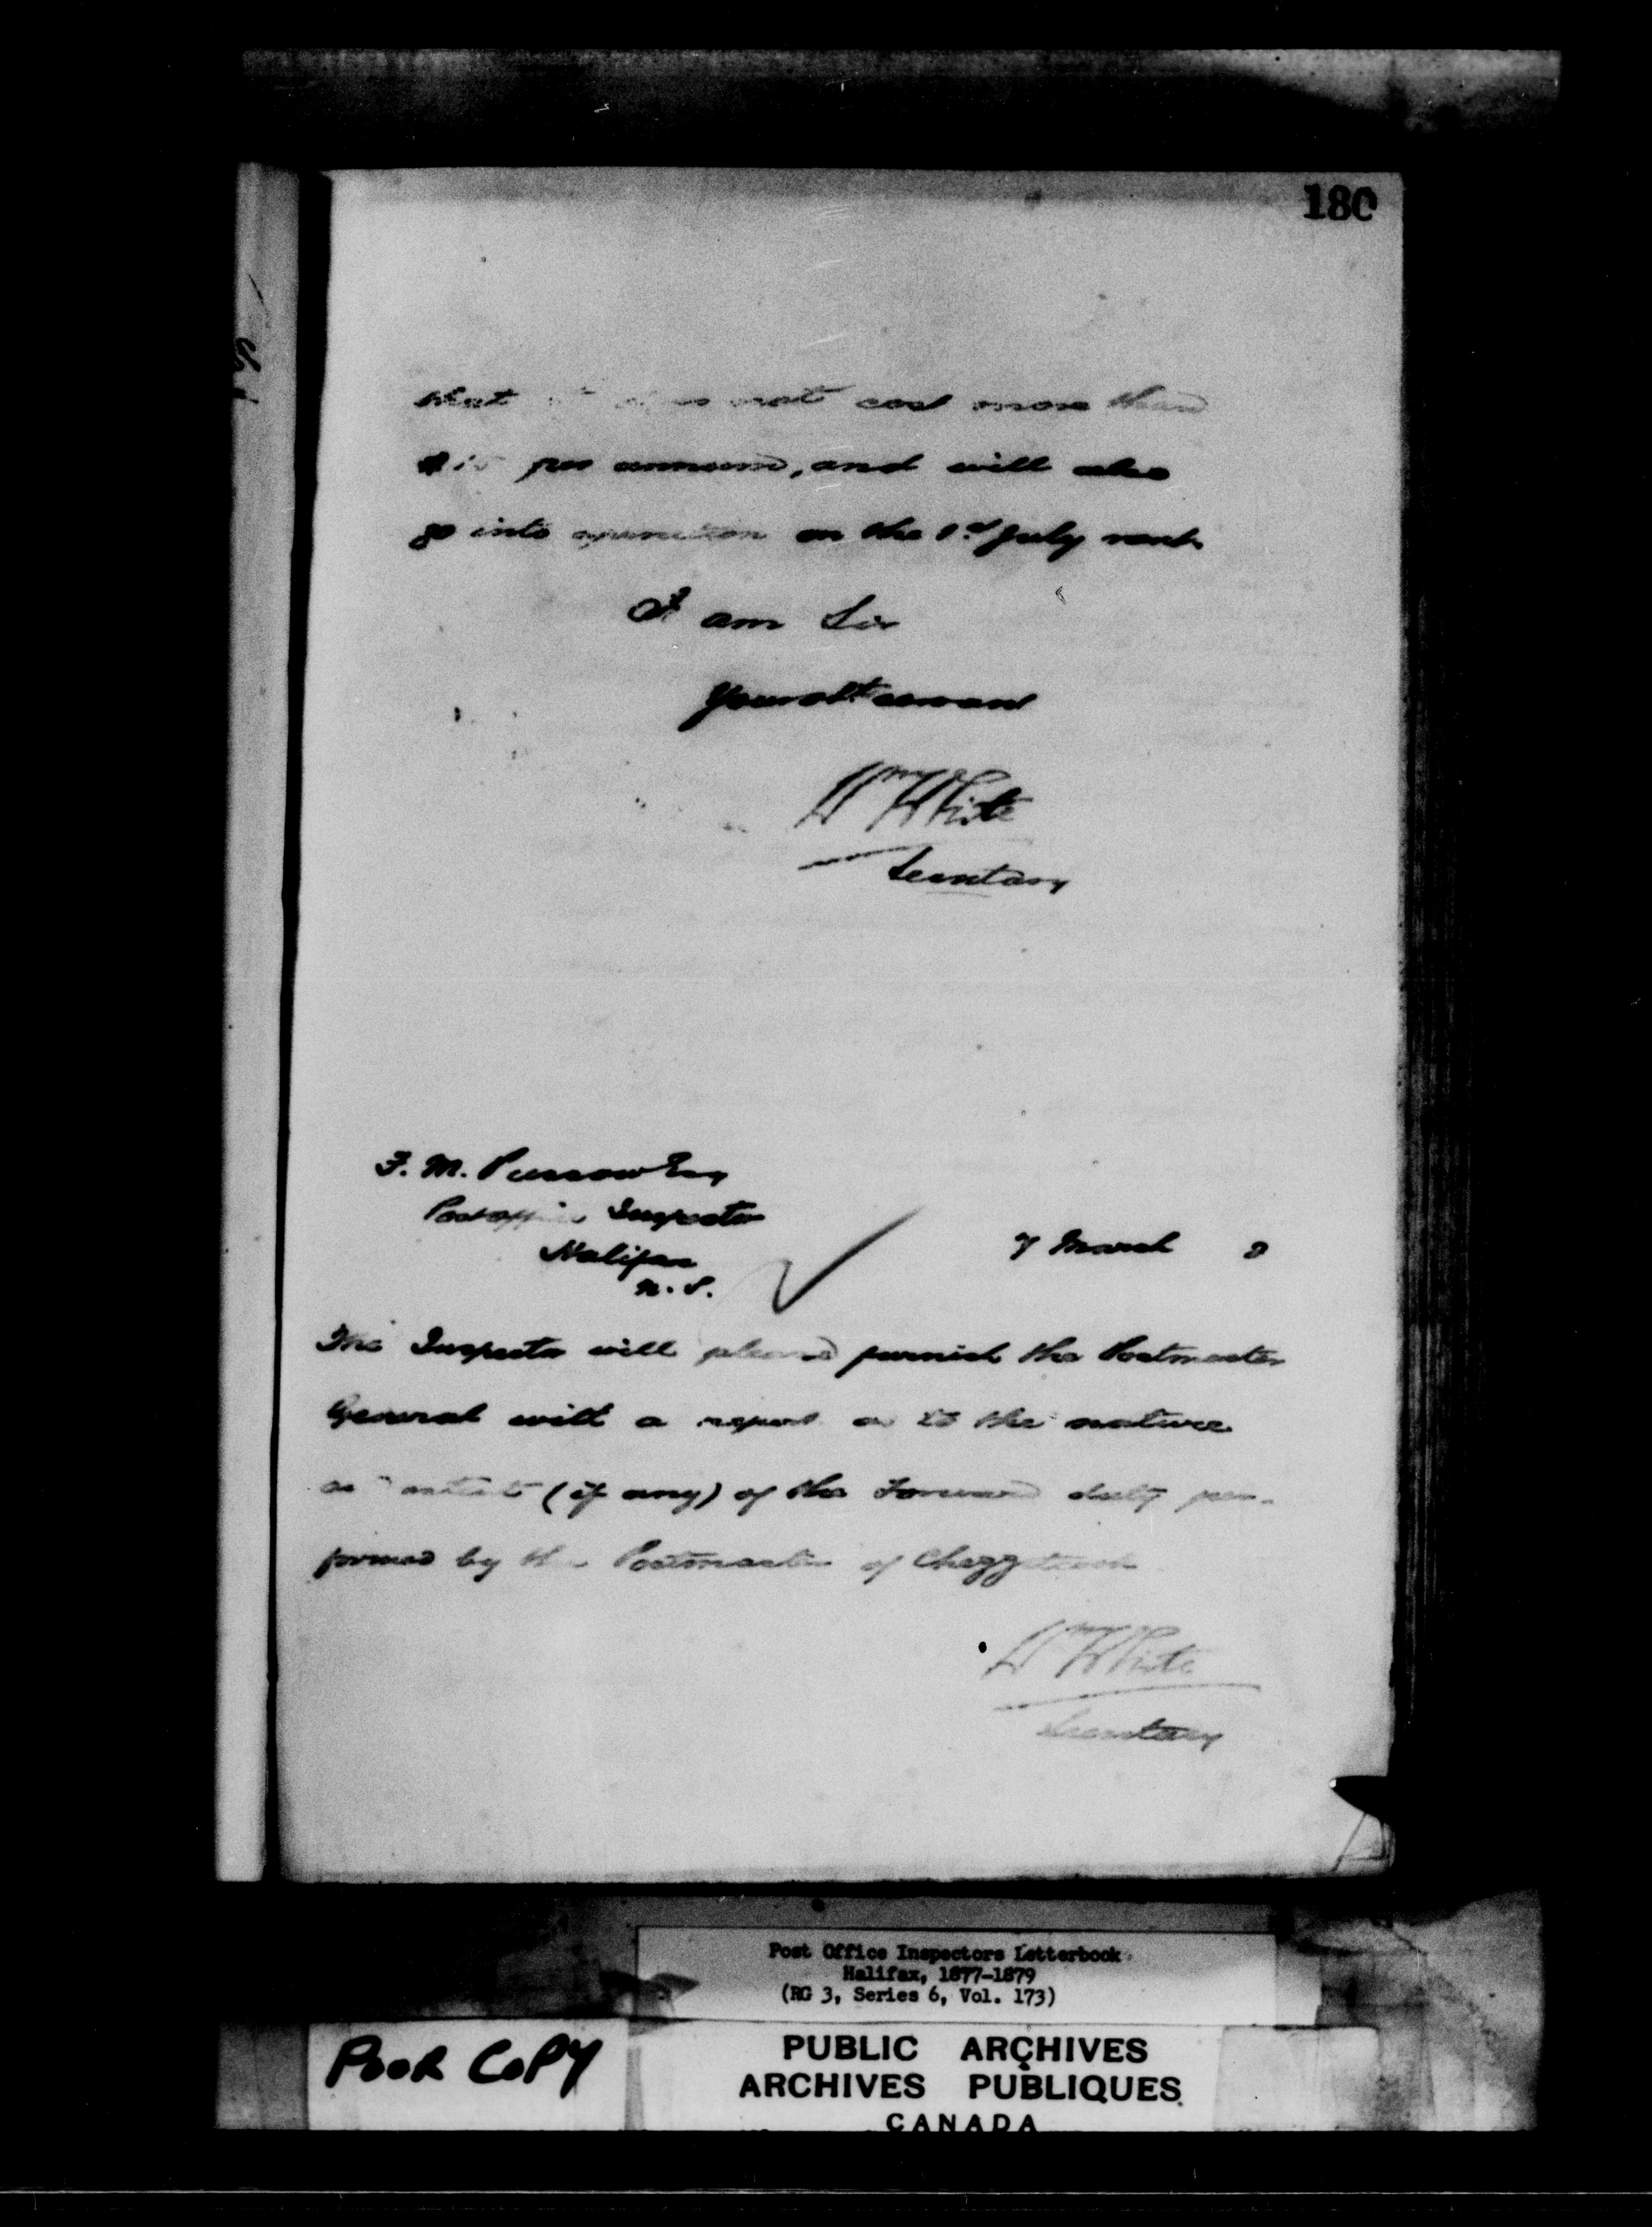 180
that it does not cost more than
per annum, and will also
go into operation on the 1st July next
I am Sir
Your obt servant
Wm White
Secretary
F. M. Passow Esq
Post office Inspector
Halifax
N. S.
7 March 8
The Inspector will please furnish the Postmaster
General with a report as to the nature
and extent (if any) of the Forward duty per-
formed by the Postmaster of
Wm White
Secretary
Post Office Inspectors Letterbook
Halifax, 1877-1879
(RG 3, Series 6, Vol. 173)
POOR COPY
PUBLIC ARCHIVES
ARCHIVES PUBLIQUES
CANADA